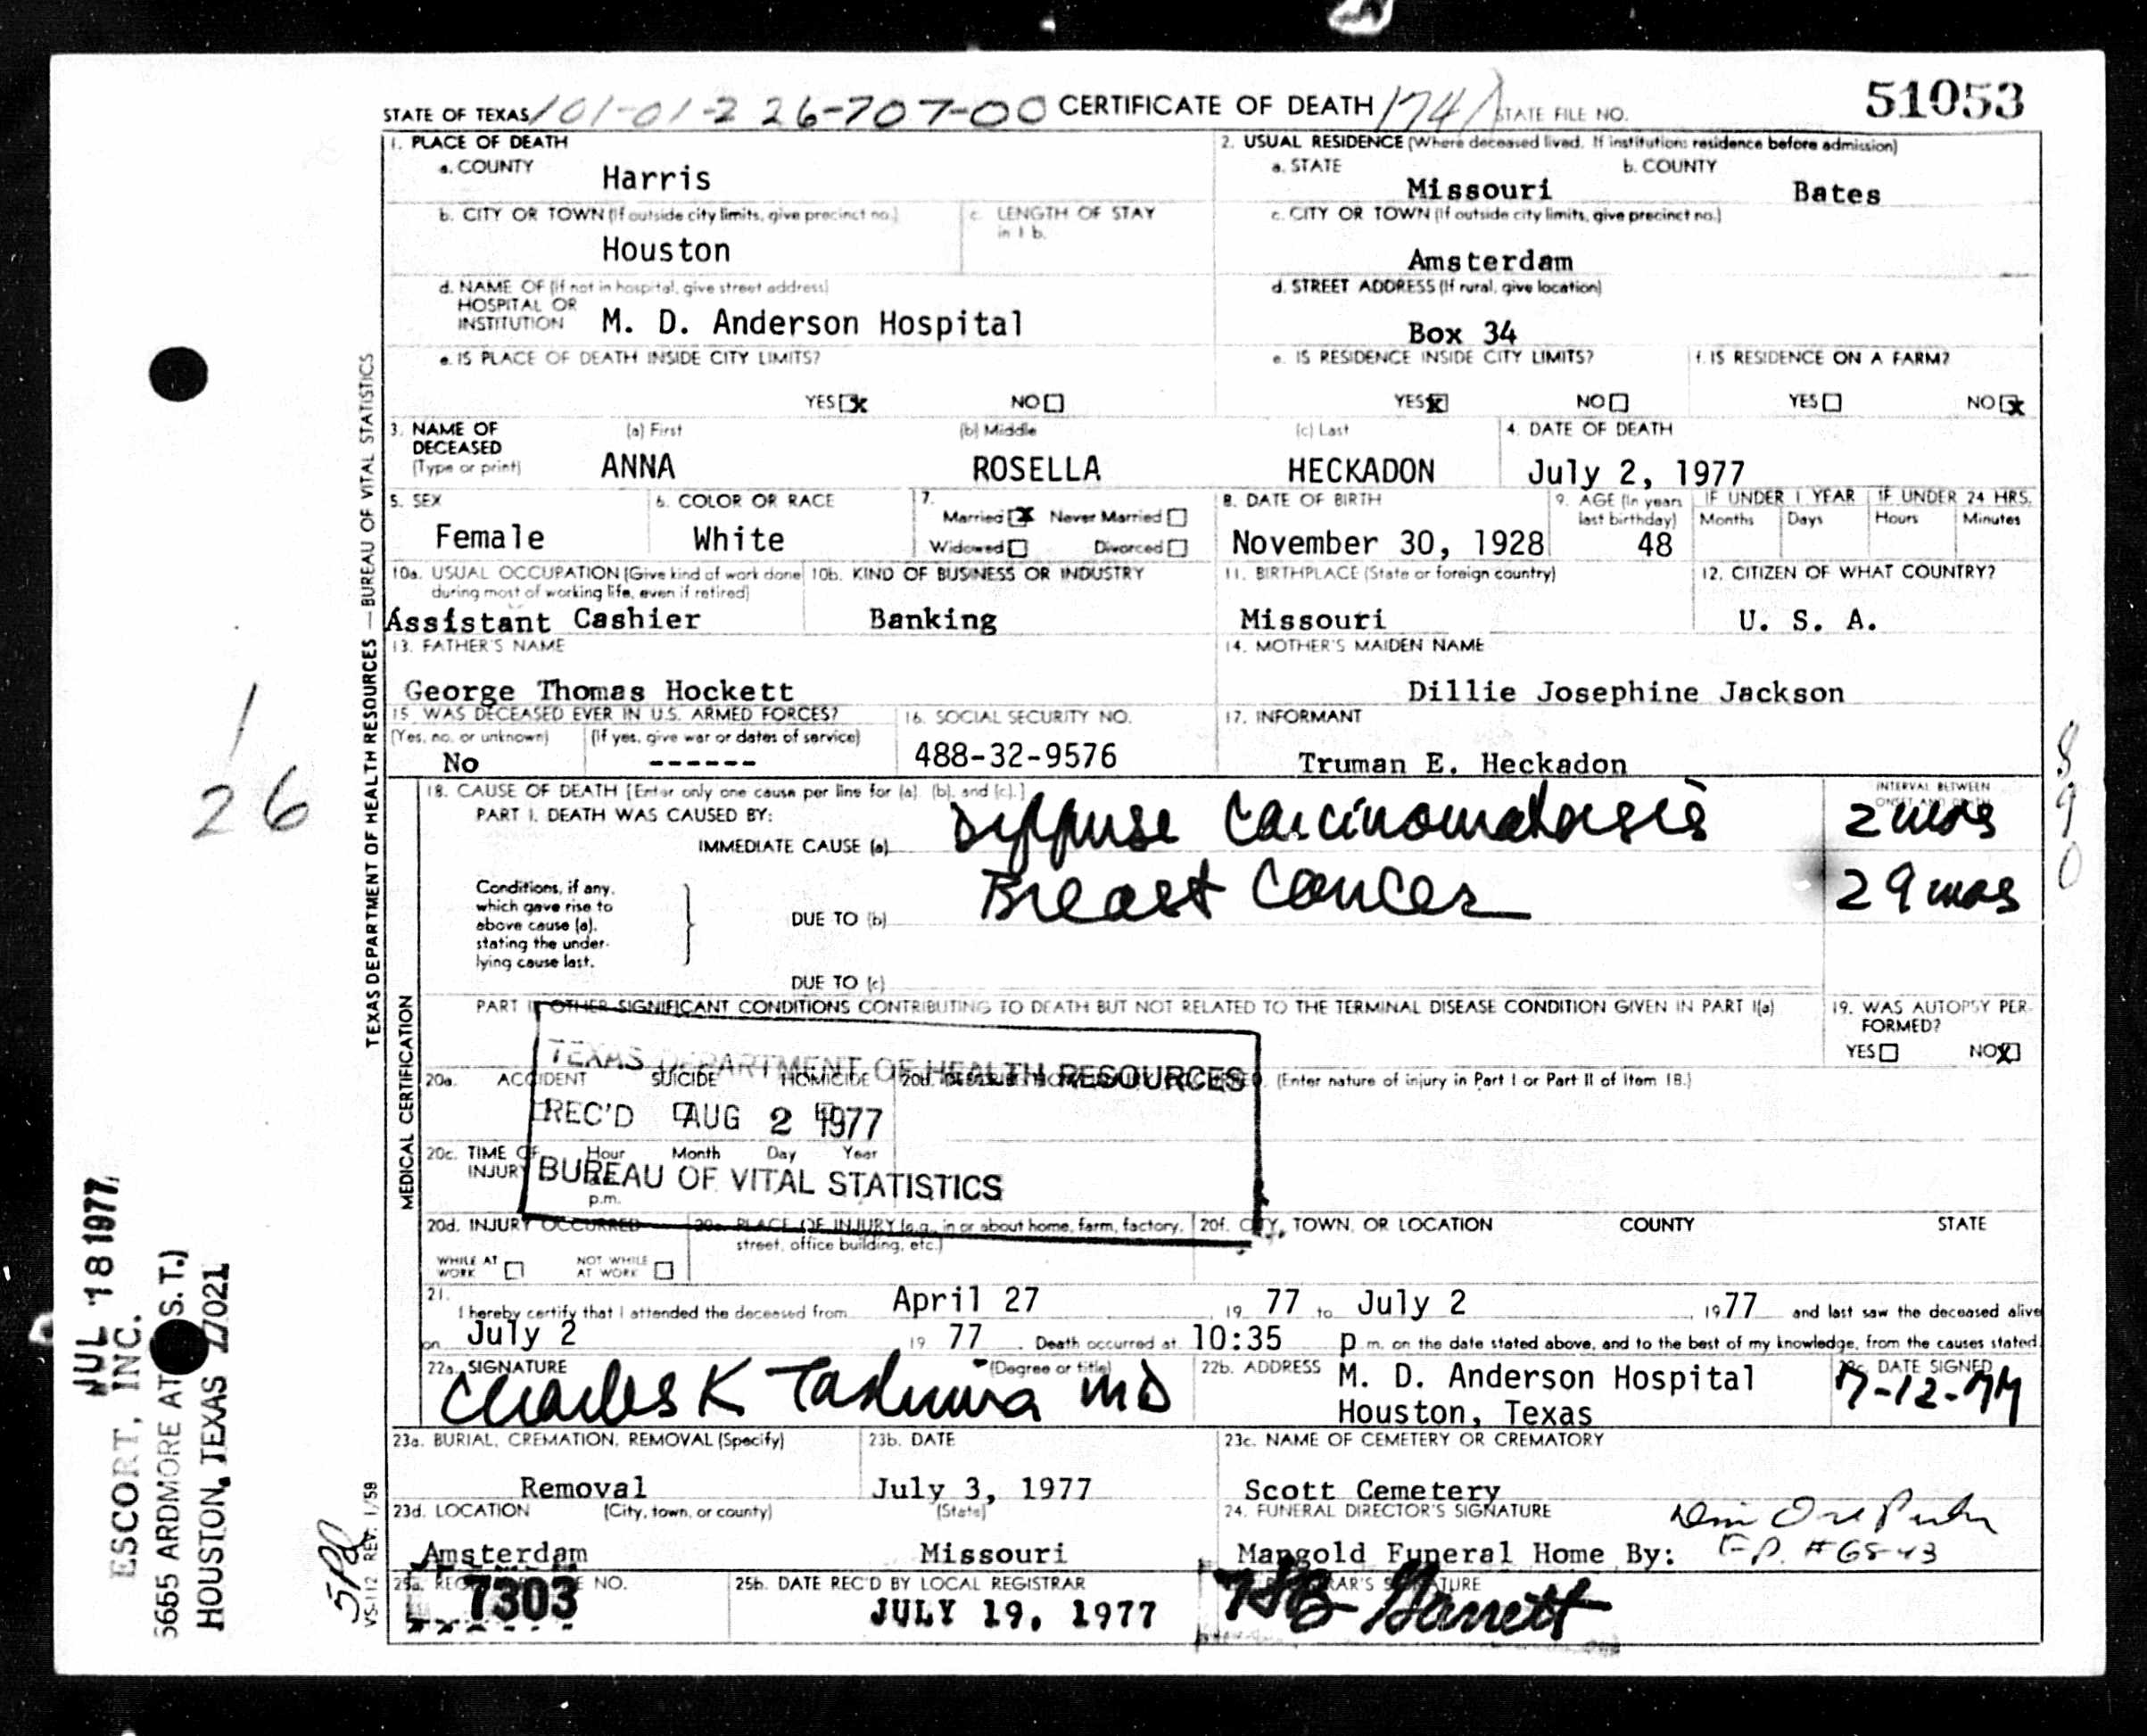 STATE OF TEXAS 101-01-2 26-707-00 CERTIFICATE OF DEATH 1741 STATE FILE NO. 51053
1. PLACE OF DEATH
a. COUNTY Harris
2. USUAL RESIDENCE (Where deceased lived. If institution: residence before admission)
a. STATE Missouri b. COUNTY Bates
b. CITY OR TOWN (If outside city limits, give precinct no.) Houston
c. LENGTH OF STAY in 1 b.
c. CITY OR TOWN (If outside city limits, give precinct no.) Amsterdam
d. NAME OF (If not in hospital, give street address) HOSPITAL OR INSTITUTION M. D. Anderson Hospital
d. STREET ADDRESS (If rural, give location) Box 34
e. IS PLACE OF DEATH INSIDE CITY LIMITS?
YES x NO
e. IS RESIDENCE INSIDE CITY LIMITS?
YES x NO
f. IS RESIDENCE ON A FARM?
YES NO x
3. NAME OF DECEASED (Type or print)
(a) First ANNA (b) Middle ROSELLA (c) Last HECKADON
4. DATE OF DEATH July 2, 1977
5. SEX Female
6. COLOR OR RACE White
7. Married x Never Married
Widowed Divorced
8. DATE OF BIRTH November 30, 1928
9. AGE (In years last birthday) 48
IF UNDER 1 YEAR Months Days
IF UNDER 24 HRS. Hours Minutes
10a. USUAL OCCUPATION (Give kind of work done during most of working life, even if retired) Assistant Cashier
10b. KIND OF BUSINESS OR INDUSTRY Banking
11. BIRTHPLACE (State or foreign country) Missouri
12. CITIZEN OF WHAT COUNTRY? U. S. A.
13. FATHER'S NAME George Thomas Hockett
14. MOTHER'S MAIDEN NAME Dillie Josephine Jackson
15. WAS DECEASED EVER IN U.S. ARMED FORCES?
(Yes, no, or unknown) No (If yes, give war or dates of service) ------
16. SOCIAL SECURITY NO. 488-32-9576
17. INFORMANT Truman E. Heckadon
18. CAUSE OF DEATH [Enter only one cause per line for (a), (b), and (c).]
INTERVAL BETWEEN ONSET AND DEATH
PART I. DEATH WAS CAUSED BY:
IMMEDIATE CAUSE (a) Diffuse Carcinomatosis 2 mos
Conditions, if any, which gave rise to above cause (a), stating the underlying cause last.
DUE TO (b) Breast Cancer 29 mos
DUE TO (c)
PART II OTHER SIGNIFICANT CONDITIONS CONTRIBUTING TO DEATH BUT NOT RELATED TO THE TERMINAL DISEASE CONDITION GIVEN IN PART I(a)
19. WAS AUTOPSY PERFORMED?
YES NO X
20a. ACCIDENT SUICIDE HOMICIDE
20b. (Enter nature of injury in Part I or Part II of Item 18.)
TEXAS DEPARTMENT OF HEALTH RESOURCES
REC'D AUG 2 1977
BUREAU OF VITAL STATISTICS
20c. TIME OF INJURY Hour Month Day Year
p.m.
20d. INJURY OCCURRED
WHILE AT WORK NOT WHILE AT WORK
20e. PLACE OF INJURY (e.g., in or about home, farm, factory, street, office building, etc.)
20f. CITY, TOWN, OR LOCATION COUNTY STATE
21. I hereby certify that I attended the deceased from April 27 1977 to July 2, 1977 and last saw the deceased alive
on July 2 1977. Death occurred at 10:35 p m. on the date stated above, and to the best of my knowledge, from the causes stated.
22a. SIGNATURE (Degree or title) Charles K Tashima MD
22b. ADDRESS M. D. Anderson Hospital
Houston, Texas
22c. DATE SIGNED 7-12-77
23a. BURIAL, CREMATION, REMOVAL (Specify) Removal
23b. DATE July 3, 1977
23c. NAME OF CEMETERY OR CREMATORY Scott Cemetery
23d. LOCATION (City, town, or county) (State)
Amsterdam Missouri
24. FUNERAL DIRECTOR'S SIGNATURE
Mangold Funeral Home By:
F.D. #6543
25a. NO. 7303
25b. DATE REC'D BY LOCAL REGISTRAR JULY 19, 1977
Garrett
TEXAS DEPARTMENT OF HEALTH RESOURCES — BUREAU OF VITAL STATISTICS
MEDICAL CERTIFICATION
VS-112 REV. 1/58
1
26
890
JUL 18 1977
ESCORT, INC.
5655 ARDMORE AT S.T.)
HOUSTON, TEXAS 77021